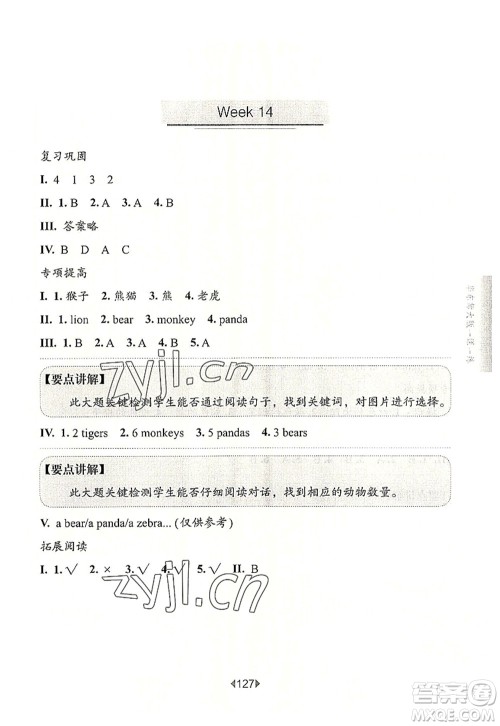 Week 14
复习巩固
I. 4 1 3 2
II. 1. B 2. A 3. A 4. B
III. 答案略
IV. B D A C
专项提高
I. 1. 猴子 2. 熊猫 3. 熊 4. 老虎
II. 1. lion 2. bear 3. monkey 4. panda
III. 1. A 2. B 3. B 4. A 5. A
【要点讲解】
此大题关键检测学生能否通过阅读句子，找到关键词，对图片进行选择。
IV. 1. 2 tigers 2. 6 monkeys 3. 5 pandas 4. 3 bears
【要点讲解】
此大题关键检测学生能否仔细阅读对话，找到相应的动物数量。
V. a bear/a panda/a zebra... (仅供参考)
拓展阅读
I. 1. √ 2. × 3. √ 4. √ 5. √ II. B
127
zyjl.cn
zyjl.cn
答案圈
MXQE.COM